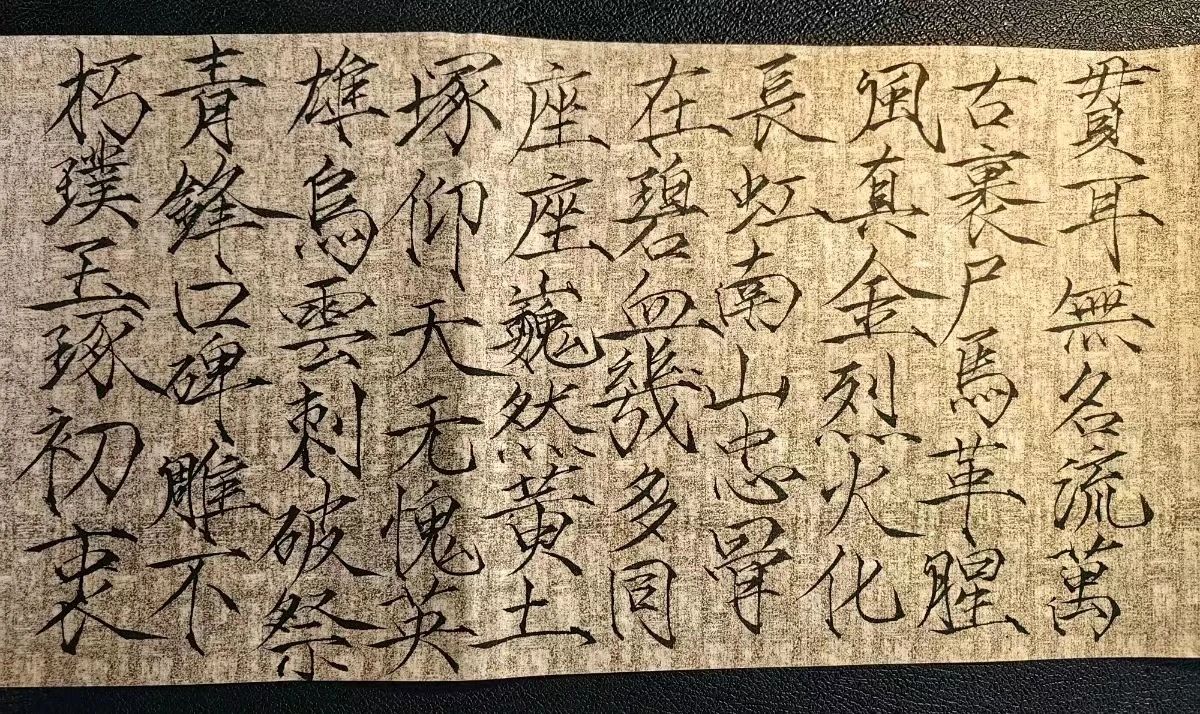 貫耳無名流萬
古裹尸馬革腥
風真金烈火化
長虹南山忠骨
在碧血幾多回
座座巍然黄土
塚仰天无愧英
雄烏雲刺破祭
青鋒口碑雕不
朽璞玉琢初衷